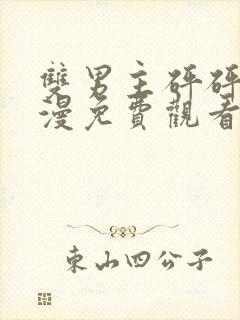 雙男主砰砰
漫免費觀看
東山四公子